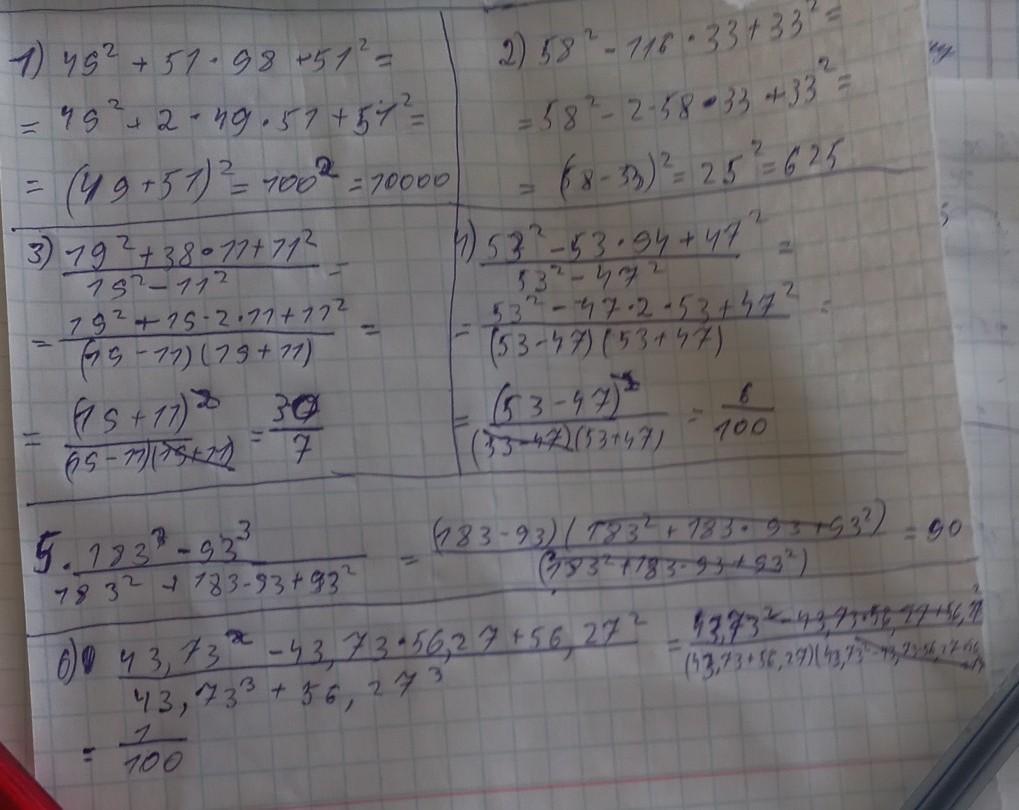 1) 49² + 51 · 98 + 51² =
= 49² + 2 · 49 · 51 + 51² =
= (49 + 51)² = 100² = 10000
2) 58² - 116 · 33 + 33² =
= 58² - 2 · 58 · 33 + 33² =
= (58 - 33)² = 25² = 625
3) (19² + 38 · 11 + 11²) / (19² - 11²) =
= (19² + 19 · 2 · 11 + 11²) / ((19 - 11)(19 + 11)) =
= (19 + 11)² / ((19 - 11)(19 + 11)) = 30 / 7
4) (53² - 53 · 94 + 47²) / (53² - 47²) =
= (53² - 47 · 2 · 53 + 47²) / ((53 - 47)(53 + 47)) =
= (53 - 47)² / ((53 - 47)(53 + 47)) = 6 / 100
5. (183³ - 93³) / (183² + 183 · 93 + 93²) = (183 - 93)(183² + 183 · 93 + 93²) / (183² + 183 · 93 + 93²) = 90
6) (43,73² - 43,73 · 56,27 + 56,27²) / (43,73³ + 56,27³) = (43,73² - 43,73 · 56,27 + 56,27²) / ((43,73 + 56,27)(43,73² - 43,73 · 56,27 + 56
= 1 / 100